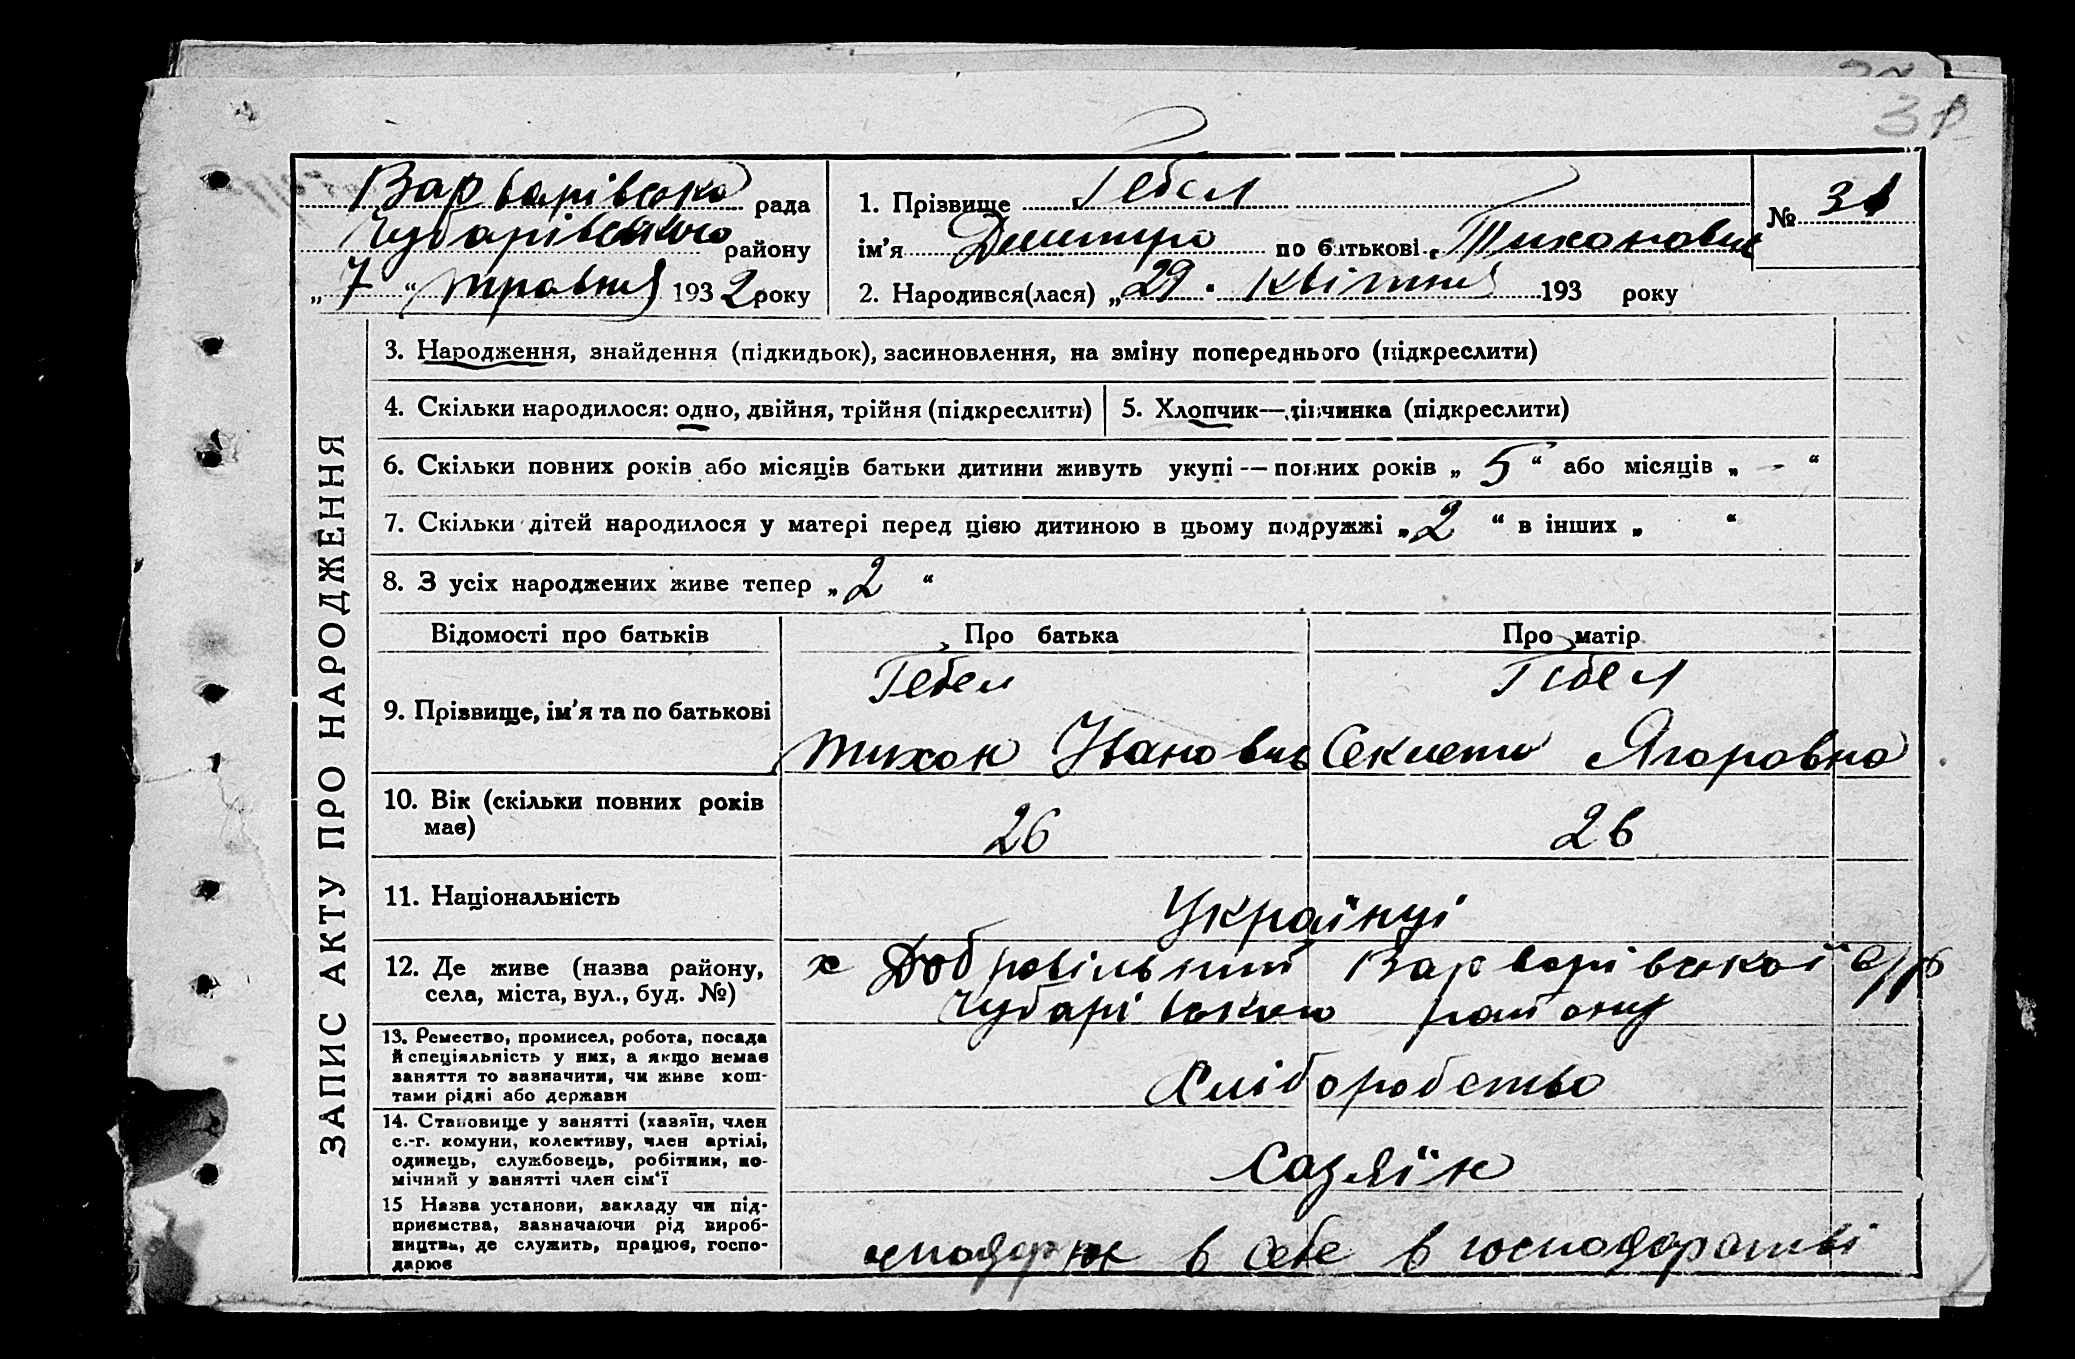 38
Варварівська рада
Чубарівського району
„7“ травня 1932 року
1. Прізвище Гебел
ім’я Дмитро по батькові Тихонович
2. Народився(лася) „29. квітня 193 року
№ 31
ЗАПИС АКТУ ПРО НАРОДЖЕННЯ
3. Народження, знайдення (підкидьок), засиновлення, на зміну попереднього (підкреслити)
4. Скільки народилося: одно, двійня, трійня (підкреслити)
5. Хлопчик—дівчинка (підкреслити)
6. Скільки повних років або місяців батьки дитини живуть укупі — повних років „5“ або місяців „-“
7. Скільки дітей народилося у матері перед цією дитиною в цьому подружжі „2“ в інших „ “
8. З усіх народжених живе тепер „2“
Відомості про батьків
Про батька
Про матір
9. Прізвище, ім’я та по батькові
Гебел
Тихон Іванович
Гебел
Ягоровна
10. Вік (скільки повних років
має)
26
26
11. Національність
Українці
12. Де живе (назва району,
села, міста, вул., буд. №)
х Добровільний Варварівської с/р
Чубарівського району
13. Ремество, промисел, робота, посада
й спеціяльність у них, а якщо немає
заняття то зазначити, чи живе кош-
тами рідні або держави
Хліборобство
14. Становище у занятті (хазяїн, член
с.-г. комуни, колективу, член артілі,
одинець, службовець, робітник, по-
мічний у занятті член сім'ї
Хазяїн
15 Назва установи, закладу чи під-
приємства, зазначаючи рід вироб-
ництва, де служить, працює, госпо-
дарює
в себе в господарстві